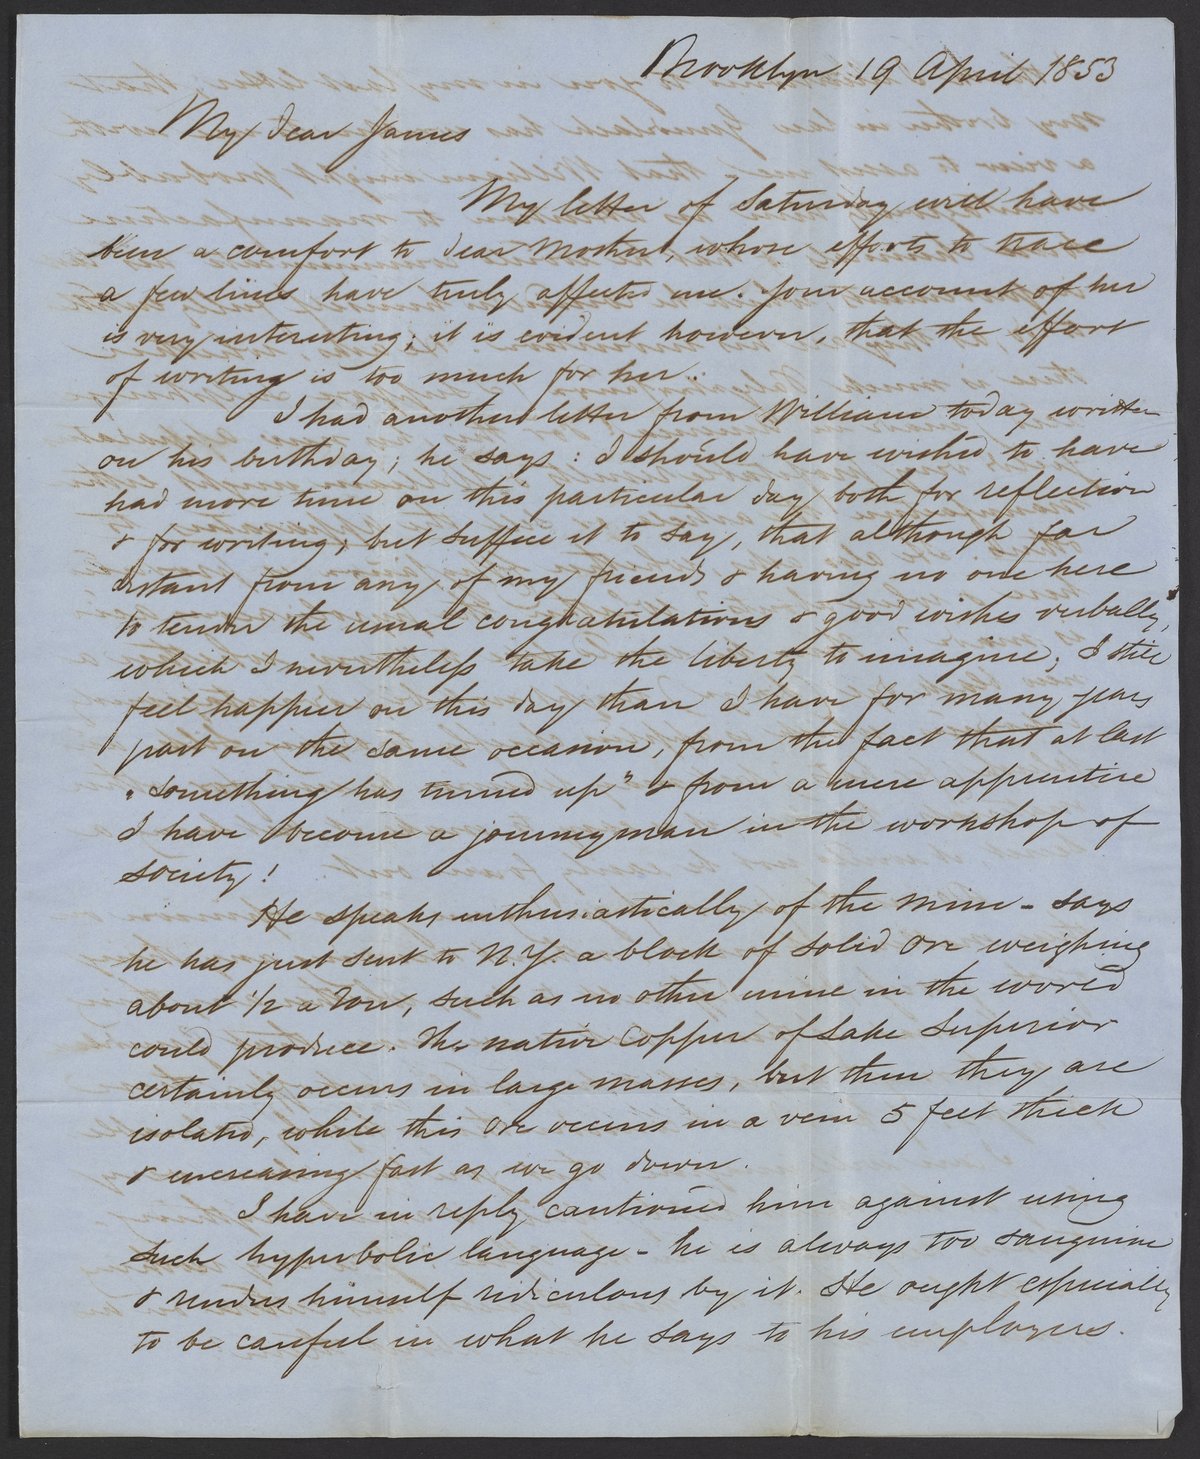 Brooklyn 19 April 1853
My dear James
My letter of Saturday will have
been a comfort to dear Mother, whose efforts to trace
a few lines have truly affected me. Your account of her
is very interesting; it is evident however, that the effort
of writing is too much for her.
I had another letter from William today written
on his birthday; he says: I should have wished to have
had more time on this particular day both for reflection
& for writing; but suffice it to say, that although far
distant from any of my friends & having no one here
to tender the usual congratulations & good wishes verbally,
which I nevertheless take the liberty to imagine; I still
feel happier on this day than I have for many years
past on the same occasion, from the fact that at last
"something has turned up" & from a mere apprentice
I have become a journeyman in the workshop of
society!
He speaks enthusiastically of the mine - says
he has just sent to N.Y. a block of solid ore weighing
about 1/2 a Ton, such as no other mine in the world
could produce. The native Copper of Lake Superior
certainly occurs in large masses, but then they are
isolated, while this ore occurs in a vein 5 feet thick
& increasing fast as we go down.
I have in reply cautioned him against using
such hyperbolic language - he is always too sanguine
& renders himself ridiculous by it. He ought especially
to be careful in what he says to his employers.